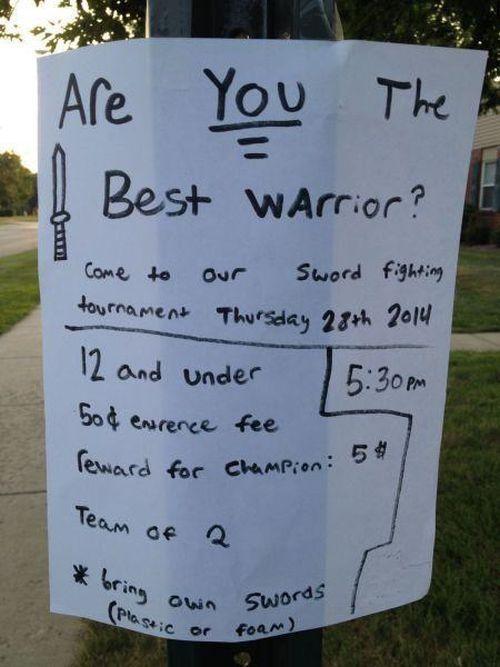 Are YOU The
Best warrior?
Come to our sword fighting
tournament Thursday 28th 2014
12 and under
5:30 PM
50¢ enrence fee
reward for champion: 5$
Team of 2
* bring own swords
(plastic or foam)